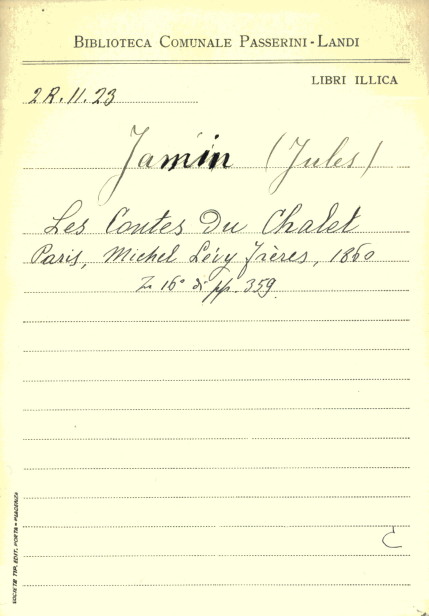 BIBLIOTECA COMUNALE PASSERINI-LANDI
LIBRI ILLICA
2R.11.23
Jamin (Jules)
Les Contes Du Chalet
Paris, Michel Lévy Frères, 1860
In 16° di pp. 359.
C
SOCIETÀ TIP. EDIT. PORTA - PIACENZA